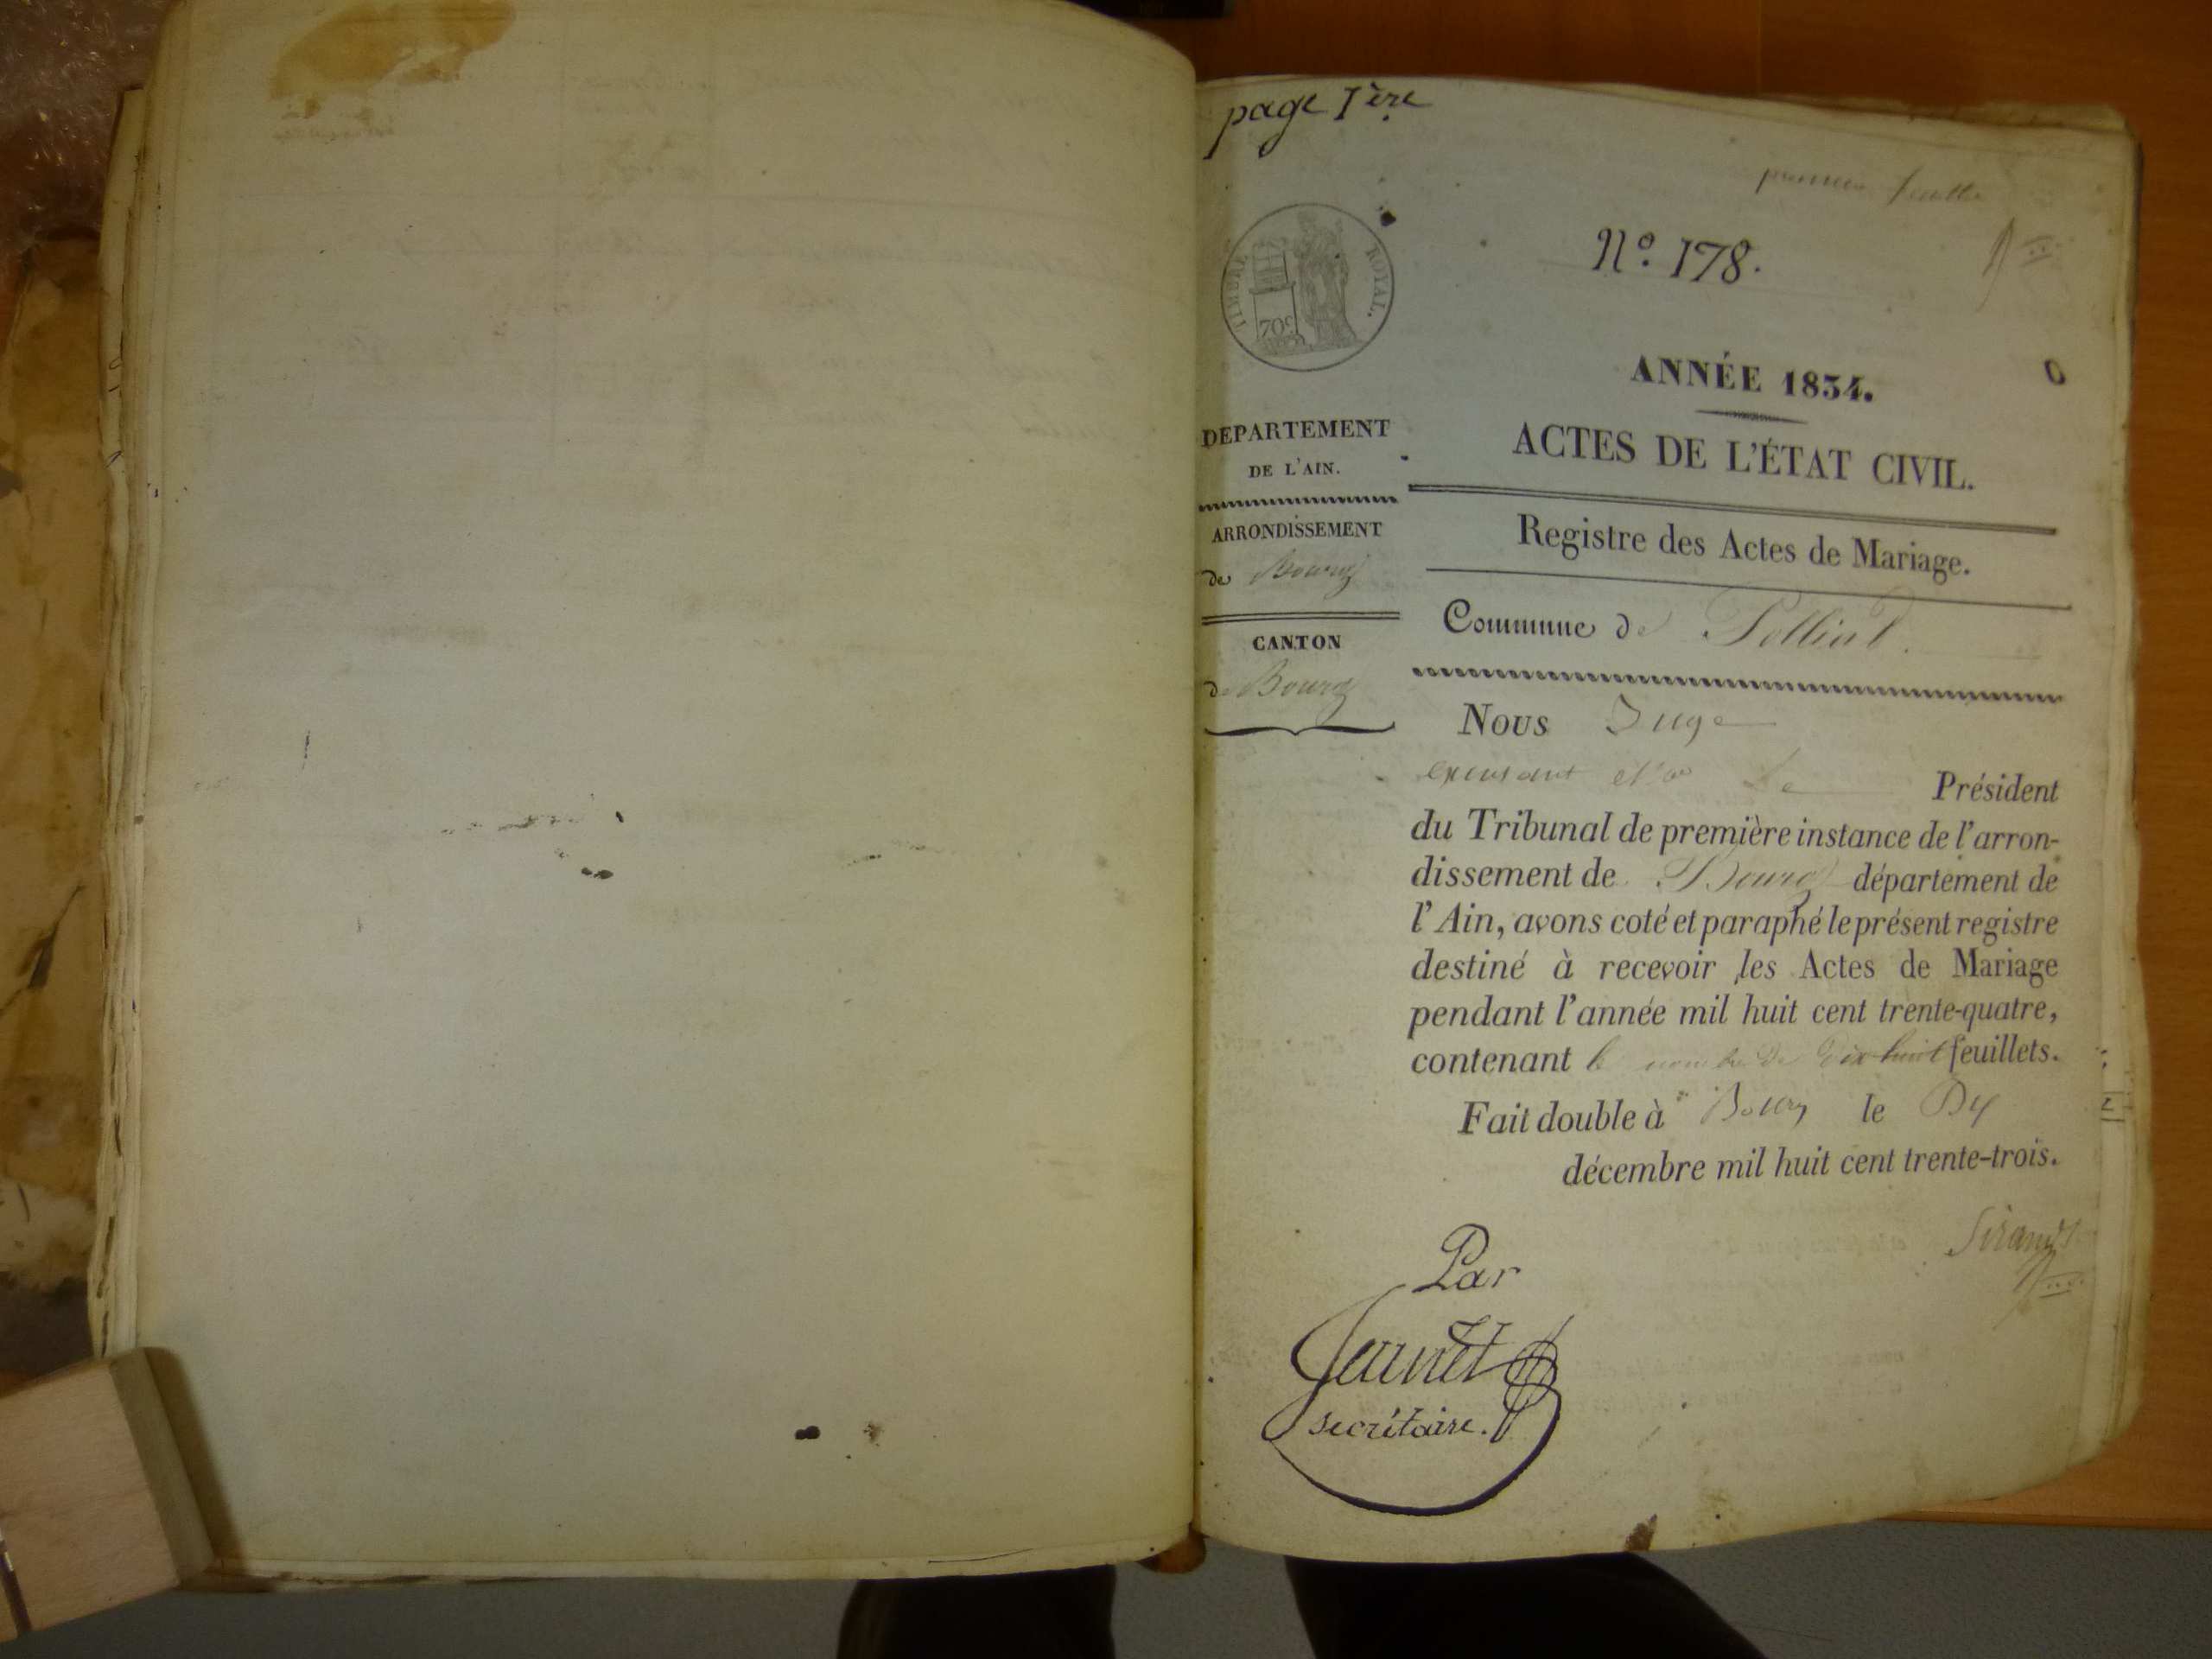 page 1ère
première feuille
N.º 178.
TIMBRE ROYAL.
70 c
ANNÉE 1834.
ACTES DE L'ÉTAT CIVIL.
DEPARTEMENT
DE L'AIN.
ARRONDISSEMENT
de Bourg
CANTON
de Bourg
Registre des Actes de Mariage.
Commune de Polliat.
Nous Juge
Président
du Tribunal de première instance de l'arron-
dissement de Bourg département de
l'Ain, avons coté et paraphé le présent registre
destiné à recevoir les Actes de Mariage
pendant l'année mil huit cent trente-quatre,
contenant le nombre de dix huit feuillets.
Fait double à Bourg le
décembre mil huit cent trente-trois.
Par
secrétaire.